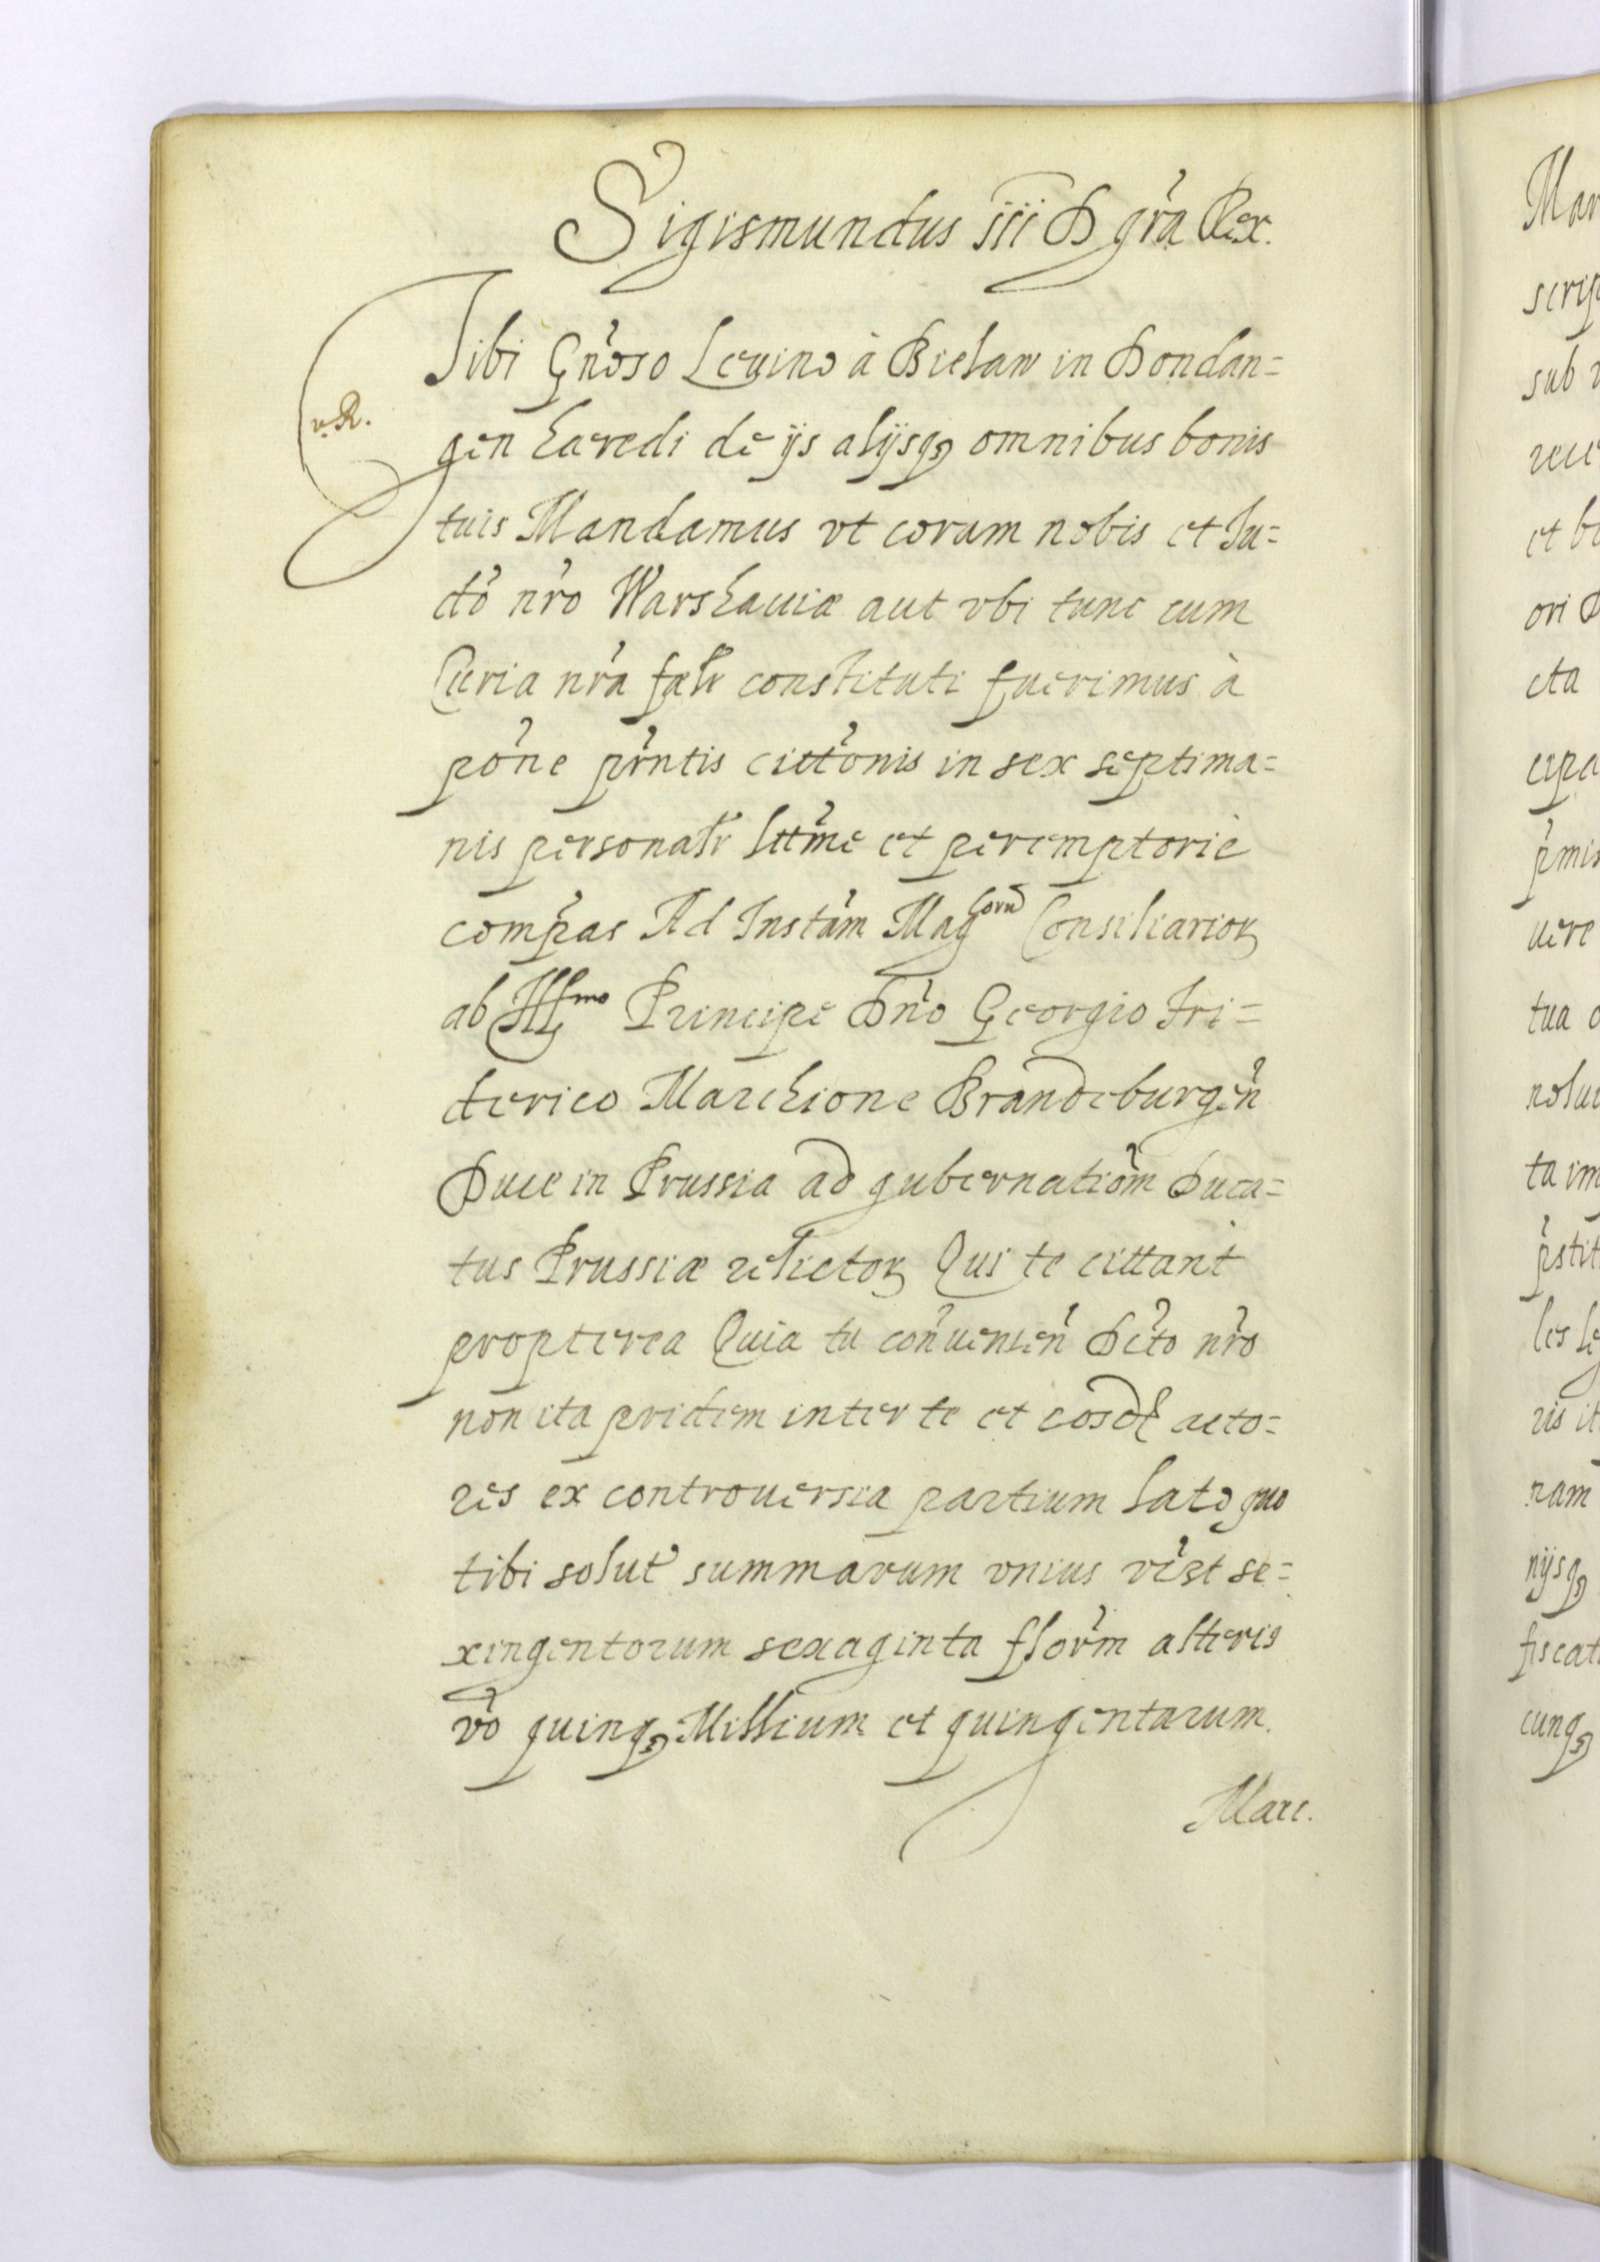 Sigismundus iii D grã Rex.
Tibi Gñoso Leuino à Bielaw in Dondan=
v. R.
gen haeredi de ijs alijsq₃ omnibus bonis
tuis Mandamus vt coram nobis et Iu=
dõ nr̃o Warshauiæ aut vbi tunc cum
Curia nr̃a fælr constituti fuerimus à
põne pñtis cittõnis in sex septima=
nis personalr littm̃e et peremptoriè
comp̃as Ad Instãm Mag^corũ Consiliarioꝝ
ab Ill^mo Principe Dñõ Georgio Fri=
derico Marchione Brandeburgeñ
Duce in Prussia ad gubernatiõm Duca=
tus Prussiæ relictoꝝ Qui te cittant
propterea Quia tu coñuenieñ Dcto nr̃o
non ita pridem inter te et eosd acto=
res ex controuersia partium lato quo
tibi solut summarum vnius vizt se=
xingentorum sexaginta florm̃ alterius
võ quinq₃ Millium et quingentarum.
Marc.
Mar
scrip
sub
rece
et b
ori D
cta
cipa
p̃mis
uere
tua
nolui
ta im
p̃stit
les le
ris it
ram
nijsq₃
fiscat
cunq₃